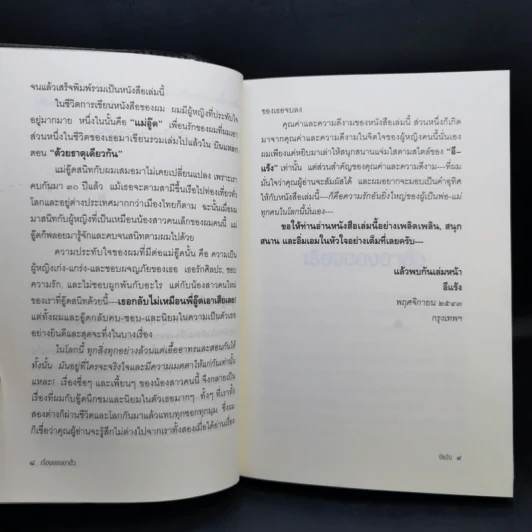 จนแล้วเสร็จพิมพ์รวมเป็นหนังสือเล่มนี้
ในชีวิตการเขียนหนังสือของผม ผมมีผู้หญิงที่ประทับใจ
อยู่มากมาย หนึ่งในนั้นคือ "แม่อู๊ด" เพื่อนรักของผมที่ผมเอา
ส่วนหนึ่งในชีวิตของเธอมาเขียนรวมเล่มไปแล้วใน
ตอน "ด้วยธาตุเดียวกัน"
แม่อู๊ดสนิทกับผมเสมอมาไม่เคยเปลี่ยนแปลง เพราะเรา
คบกันมา ๓๐ ปีแล้ว แม้เธอจะตามสามีขึ้นเรือไปท่องเที่ยวทั่ว
โลกและอยู่ต่างประเทศมากกว่าเมืองไทยก็ตาม ฉะนั้นเมื่อผม
มาสนิทกับผู้หญิงที่เป็นเหมือนน้องสาวคนเล็กของผมคนนี้ แม่
อู๊ดก็พลอยมารู้จักและคบจนสนิทตามผมไปด้วย
ความประทับใจของผมที่มีต่อแม่อู๊ดนั้น คือ ความเป็น
ผู้หญิงเก่ง-แกร่ง-และชอบผจญภัยของเธอ เธอรักศิลปะ, ชอบ
ความรัก, และไม่ชอบผูกพันกับอะไร แต่กับน้องสาวคนใหม่
ของเราที่อู๊ดสนิทด้วยนี้---เธอกลับไม่เหมือนพี่อู๊ดเอาเสียเลย!
แต่ทั้งผมและอู๊ดกลับคบ-ชอบ-และนิยมในความเป็นตัวเธอ
อย่างยินดีและสุดจะทึ่งในบางเรื่อง
ในโลกนี้ ทุกสิ่งทุกอย่างล้วนแต่เอื้ออาทรและสอนกันได้
ทั้งนั้น มันอยู่ที่ใครจะจริงใจและมีความเมตตาให้แก่กันเท่านั้น
แหละ! เรื่องชื่อๆ และเพี้ยนๆ ของน้องสาวคนนี้ จึงกลายเป็น
เรื่องที่ผมกับอู๊ดนึกชมและนิยมในตัวเธอมากๆ ทั้งๆ ที่เราทั้ง
สองต่างก็ผ่านชีวิตและโลกกันมาแล้วแทบทุกซอกทุกมุม, ซึ่งผม
ก็เชื่อว่าคุณผู้อ่านจะรู้สึกไม่ต่างไปจากเราทั้งสองเมื่อได้อ่านเรื่อง
๘ เรื่องของยายตัว
ของเธอจบลง
คุณค่าและความดีงามของหนังสือเล่มนี้ ส่วนหนึ่งก็เกิด
มาจากคุณค่าและความดีงามในจิตใจของผู้หญิงคนนี้นั่นเอง
ผมเพียงแค่หยิบมาเล่าให้สนุกสนานแจ่มใสตามสไตล์ของ "อี-
แร้ง" เท่านั้น แต่ส่วนสำคัญของคุณค่าและความดีงาม---ที่ผม
มั่นใจว่าคุณผู้อ่านจะสัมผัสได้ และผมอยากจะมอบเป็นคำอุทิศ
ให้กับหนังสือเล่มนี้---ก็คือความรักอันยิ่งใหญ่ของผู้เป็นพ่อ-แม่
ทุกคนในโลกนี้นั่นเอง---
ขอให้ท่านอ่านหนังสือเล่มนี้อย่างเพลิดเพลิน, สนุก
สนาน และอิ่มเอมในหัวใจอย่างเต็มที่เลยครับ---
แล้วพบกันเล่มหน้า
อีแร้ง
พฤศจิกายน ๒๕๔๓
กรุงเทพฯ
อีแร้ง ๙